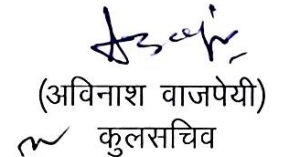 (अविनाश वाजपेयी)
कुलसचिव